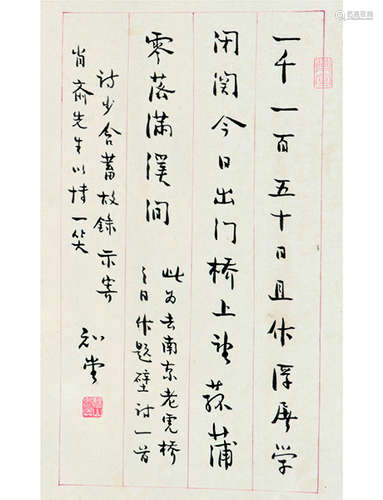 一千一百五十日且作浮屠学
闭关今日出门桥上望菰蒲
零落满溪间
此为去南京老虎桥
之日作题壁诗一首
诗少含蓄故録示寄
肖斋先生以博一笑
知堂